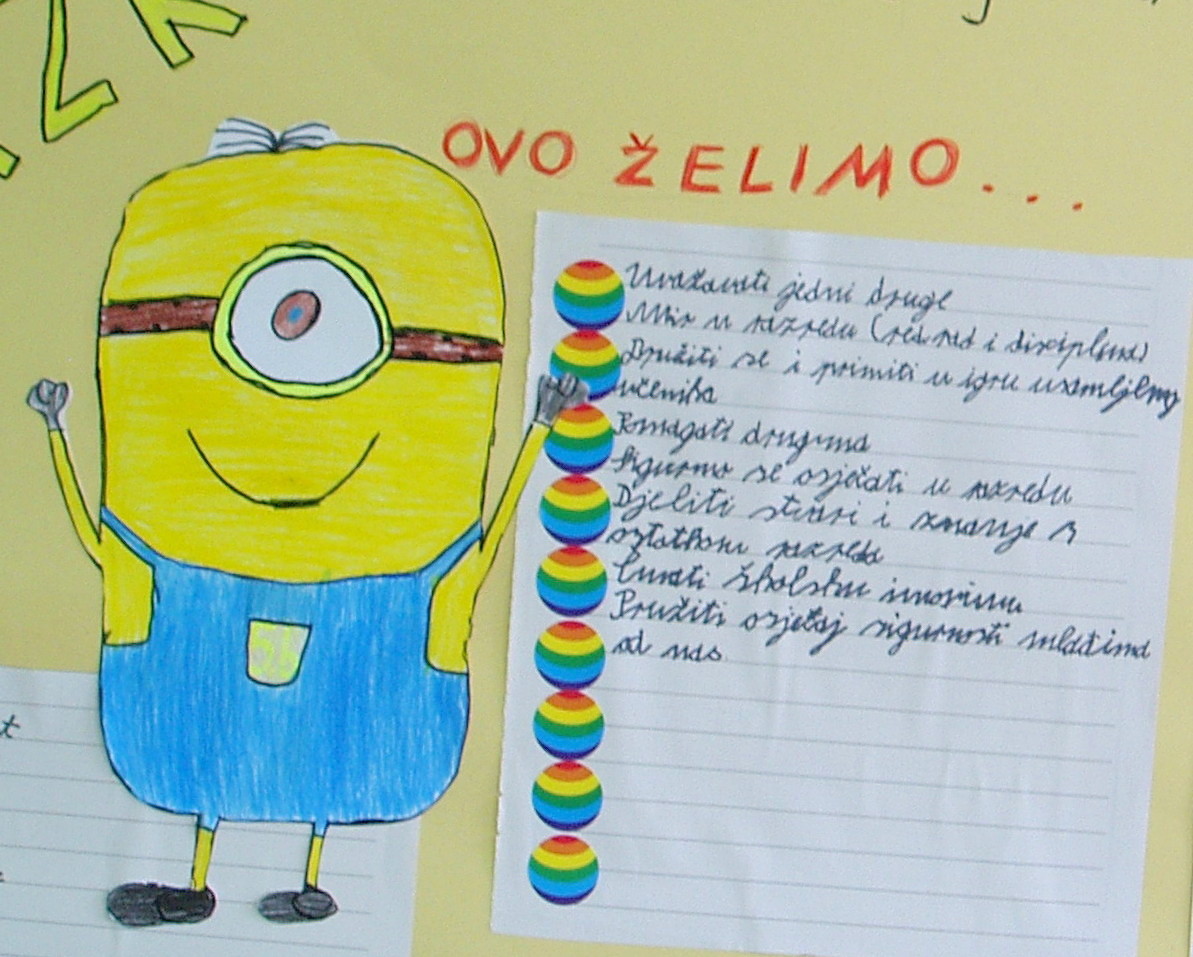 ZK
OVO ŽELIMO...
Uvažavati jedni druge
Mir u razredu (red, rad i disciplina)
Družiti se i primiti u igru usamljenog
učenika
Pomagati drugima
Sigurno se osjećati u razredu
Djeliti stvari i znanje s
ostatkom razreda
Čuvati školsku imovinu
Pružiti osjećaj sigurnosti mlađima
od nas